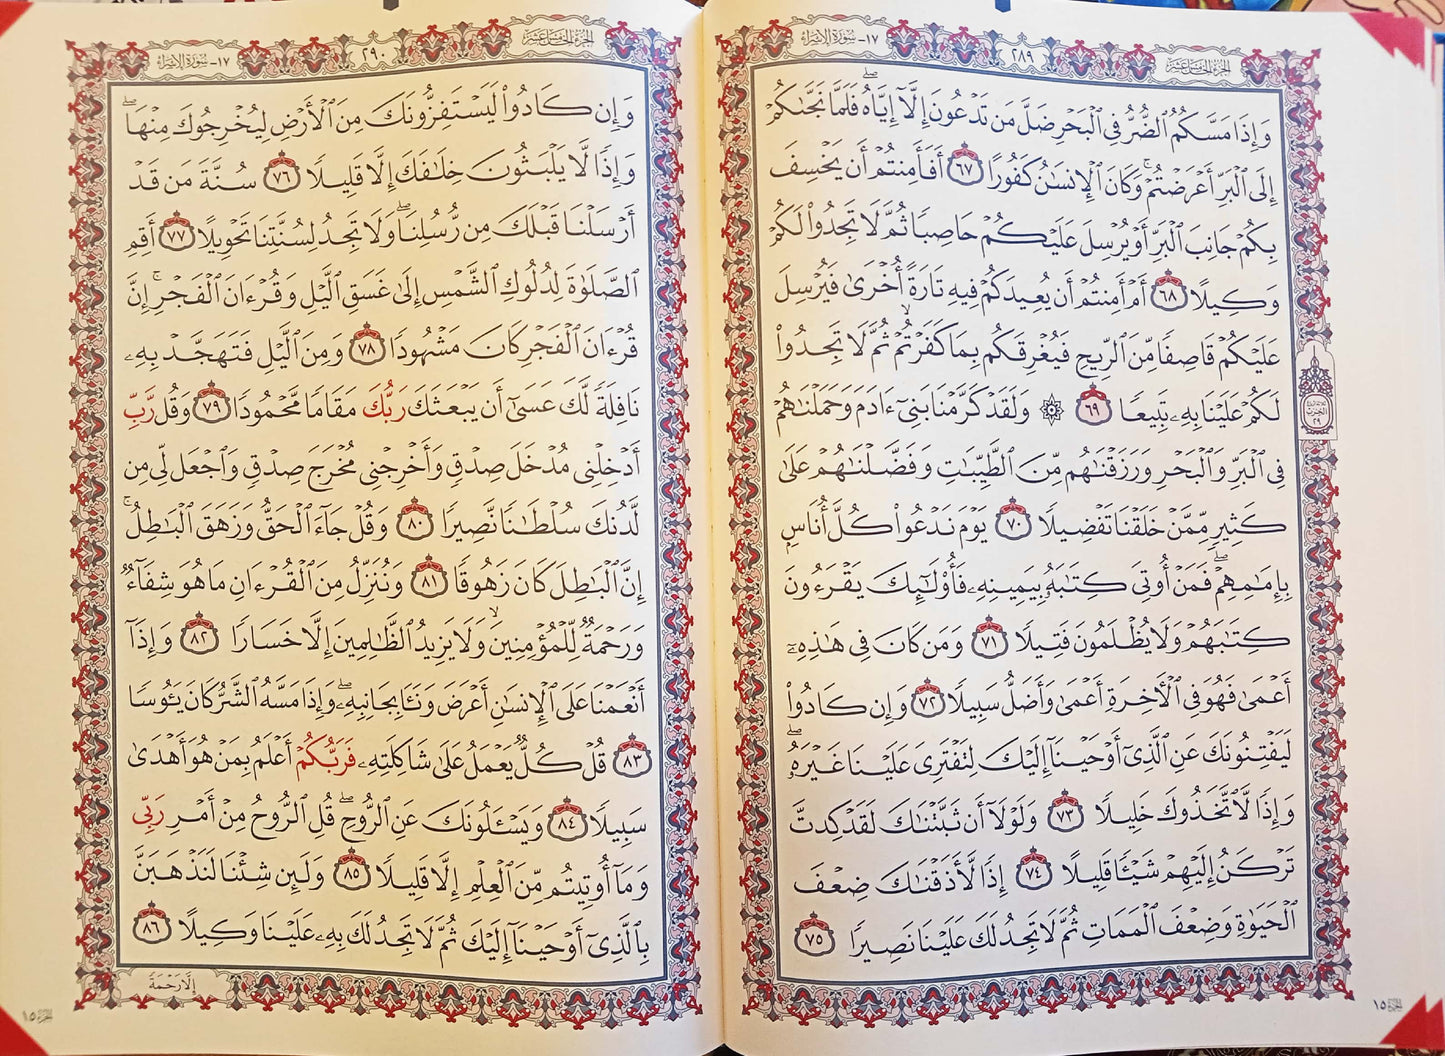 الجزء الخامس عشر
٢٨٩
١٧- سورة الإسراء
وَإِذَا مَسَّكُمُ ٱلضُّرُّ فِى ٱلْبَحْرِ ضَلَّ مَن تَدْعُونَ إِلَّآ إِيَّاهُ ۖ فَلَمَّا نَجَّىٰكُمْ
إِلَى ٱلْبَرِّ أَعْرَضْتُمْ ۚ وَكَانَ ٱلْإِنسَٰنُ كَفُورًا ٦٧ أَفَأَمِنتُمْ أَن يَخْسِفَ
بِكُمْ جَانِبَ ٱلْبَرِّ أَوْ يُرْسِلَ عَلَيْكُمْ حَاصِبًا ثُمَّ لَا تَجِدُوا۟ لَكُمْ
وَكِيلًا ٦٨ أَمْ أَمِنتُمْ أَن يُعِيدَكُمْ فِيهِ تَارَةً أُخْرَىٰ فَيُرْسِلَ
عَلَيْكُمْ قَاصِفًا مِّنَ ٱلرِّيحِ فَيُغْرِقَكُم بِمَا كَفَرْتُمْ ۙ ثُمَّ لَا تَجِدُوا۟
لَكُمْ عَلَيْنَا بِهِۦ تَبِيعًا ٦٩ ۞ وَلَقَدْ كَرَّمْنَا بَنِىٓ ءَادَمَ وَحَمَلْنَٰهُمْ
فِى ٱلْبَرِّ وَٱلْبَحْرِ وَرَزَقْنَٰهُم مِّنَ ٱلطَّيِّبَٰتِ وَفَضَّلْنَٰهُمْ عَلَىٰ
كَثِيرٍ مِّمَّنْ خَلَقْنَا تَفْضِيلًا ٧٠ يَوْمَ نَدْعُوا۟ كُلَّ أُنَاسٍۭ
بِإِمَٰمِهِمْ ۖ فَمَنْ أُوتِىَ كِتَٰبَهُۥ بِيَمِينِهِۦ فَأُو۟لَٰٓئِكَ يَقْرَءُونَ
كِتَٰبَهُمْ وَلَا يُظْلَمُونَ فَتِيلًا ٧١ وَمَن كَانَ فِى هَٰذِهِۦٓ
أَعْمَىٰ فَهُوَ فِى ٱلْءَاخِرَةِ أَعْمَىٰ وَأَضَلُّ سَبِيلًا ٧٢ وَإِن كَادُوا۟
لَيَفْتِنُونَكَ عَنِ ٱلَّذِىٓ أَوْحَيْنَآ إِلَيْكَ لِتَفْتَرِىَ عَلَيْنَا غَيْرَهُۥ ۖ
وَإِذًا لَّٱتَّخَذُوكَ خَلِيلًا ٧٣ وَلَوْلَآ أَن ثَبَّتْنَٰكَ لَقَدْ كِدتَّ
تَرْكَنُ إِلَيْهِمْ شَيْـًٔا قَلِيلًا ٧٤ إِذًا لَّأَذَقْنَٰكَ ضِعْفَ
ٱلْحَيَوٰةِ وَضِعْفَ ٱلْمَمَاتِ ثُمَّ لَا تَجِدُ لَكَ عَلَيْنَا نَصِيرًا ٧٥
الجزء ١٥
الجزء الخامس عشر
٢٩٠
١٧- سورة الإسراء
وَإِن كَادُوا۟ لَيَسْتَفِزُّونَكَ مِنَ ٱلْأَرْضِ لِيُخْرِجُوكَ مِنْهَا ۖ
وَإِذًا لَّا يَلْبَثُونَ خِلَٰفَكَ إِلَّا قَلِيلًا ٧٦ سُنَّةَ مَن قَدْ
أَرْسَلْنَا قَبْلَكَ مِن رُّسُلِنَا ۖ وَلَا تَجِدُ لِسُنَّتِنَا تَحْوِيلًا ٧٧ أَقِمِ
ٱلصَّلَوٰةَ لِدُلُوكِ ٱلشَّمْسِ إِلَىٰ غَسَقِ ٱلَّيْلِ وَقُرْءَانَ ٱلْفَجْرِ ۖ إِنَّ
قُرْءَانَ ٱلْفَجْرِ كَانَ مَشْهُودًا ٧٨ وَمِنَ ٱلَّيْلِ فَتَهَجَّدْ بِهِۦ
نَافِلَةً لَّكَ عَسَىٰٓ أَن يَبْعَثَكَ رَبُّكَ مَقَامًا مَّحْمُودًا ٧٩ وَقُل رَّبِّ
أَدْخِلْنِى مُدْخَلَ صِدْقٍ وَأَخْرِجْنِى مُخْرَجَ صِدْقٍ وَٱجْعَل لِّى مِن
لَّدُنكَ سُلْطَٰنًا نَّصِيرًا ٨٠ وَقُلْ جَآءَ ٱلْحَقُّ وَزَهَقَ ٱلْبَٰطِلُ ۚ
إِنَّ ٱلْبَٰطِلَ كَانَ زَهُوقًا ٨١ وَنُنَزِّلُ مِنَ ٱلْقُرْءَانِ مَا هُوَ شِفَآءٌ
وَرَحْمَةٌ لِّلْمُؤْمِنِينَ ۙ وَلَا يَزِيدُ ٱلظَّٰلِمِينَ إِلَّا خَسَارًا ٨٢ وَإِذَآ
أَنْعَمْنَا عَلَى ٱلْإِنسَٰنِ أَعْرَضَ وَنَـَٔا بِجَانِبِهِۦ ۖ وَإِذَا مَسَّهُ ٱلشَّرُّ كَانَ يَـُٔوسًا
٨٣ قُلْ كُلٌّ يَعْمَلُ عَلَىٰ شَاكِلَتِهِۦ فَرَبُّكُمْ أَعْلَمُ بِمَنْ هُوَ أَهْدَىٰ
سَبِيلًا ٨٤ وَيَسْـَٔلُونَكَ عَنِ ٱلرُّوحِ ۖ قُلِ ٱلرُّوحُ مِنْ أَمْرِ رَبِّى
وَمَآ أُوتِيتُم مِّنَ ٱلْعِلْمِ إِلَّا قَلِيلًا ٨٥ وَلَئِن شِئْنَا لَنَذْهَبَنَّ
بِٱلَّذِىٓ أَوْحَيْنَآ إِلَيْكَ ثُمَّ لَا تَجِدُ لَكَ بِهِۦ عَلَيْنَا وَكِيلًا ٨٦
إِلَّا رَحْمَةً
الجزء ١٥